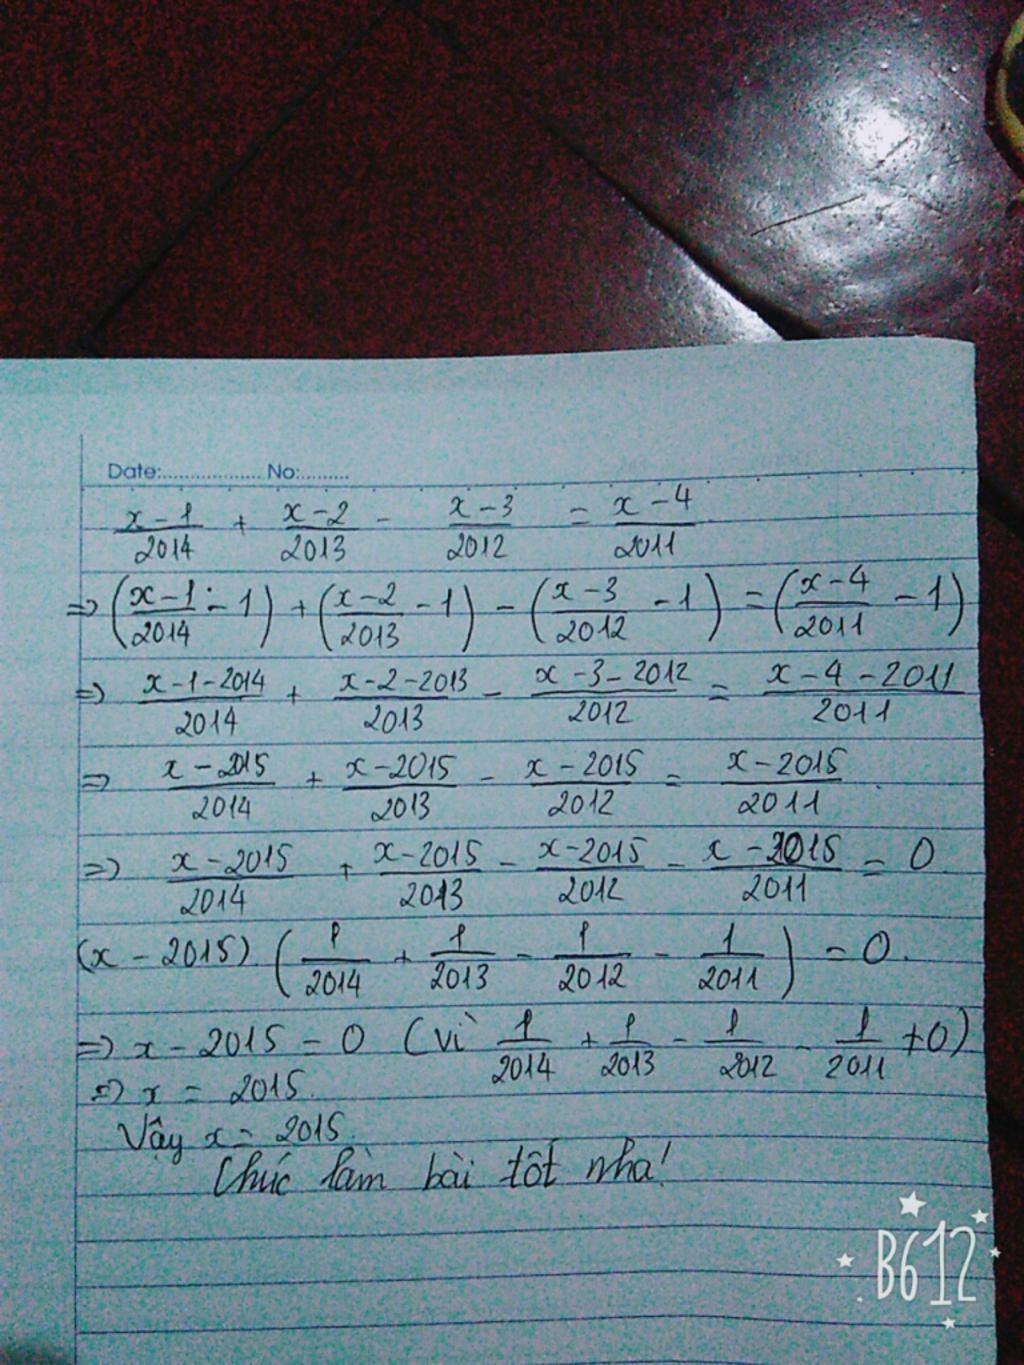 Date:.................. No:.........
\frac{x-1}{2014} + \frac{x-2}{2013} - \frac{x-3}{2012} = \frac{x-4}{2011}
=> (\frac{x-1}{2014} - 1) + (\frac{x-2}{2013} - 1) - (\frac{x-3}{2012} - 1) = (\frac{x-4}{2011} - 1)
=> \frac{x-1-2014}{2014} + \frac{x-2-2013}{2013} - \frac{x-3-2012}{2012} = \frac{x-4-2011}{2011}
=> \frac{x-2015}{2014} + \frac{x-2015}{2013} - \frac{x-2015}{2012} = \frac{x-2015}{2011}
=> \frac{x-2015}{2014} + \frac{x-2015}{2013} - \frac{x-2015}{2012} - \frac{x-2015}{2011} = 0
(x - 2015) . (\frac{1}{2014} + \frac{1}{2013} - \frac{1}{2012} - \frac{1}{2011}) = 0.
=> x - 2015 = 0 (vì \frac{1}{2014} + \frac{1}{2013} - \frac{1}{2012} - \frac{1}{2011} ≠ 0)
=> x = 2015.
Vậy x = 2015.
Chúc làm bài tốt nha!
B612